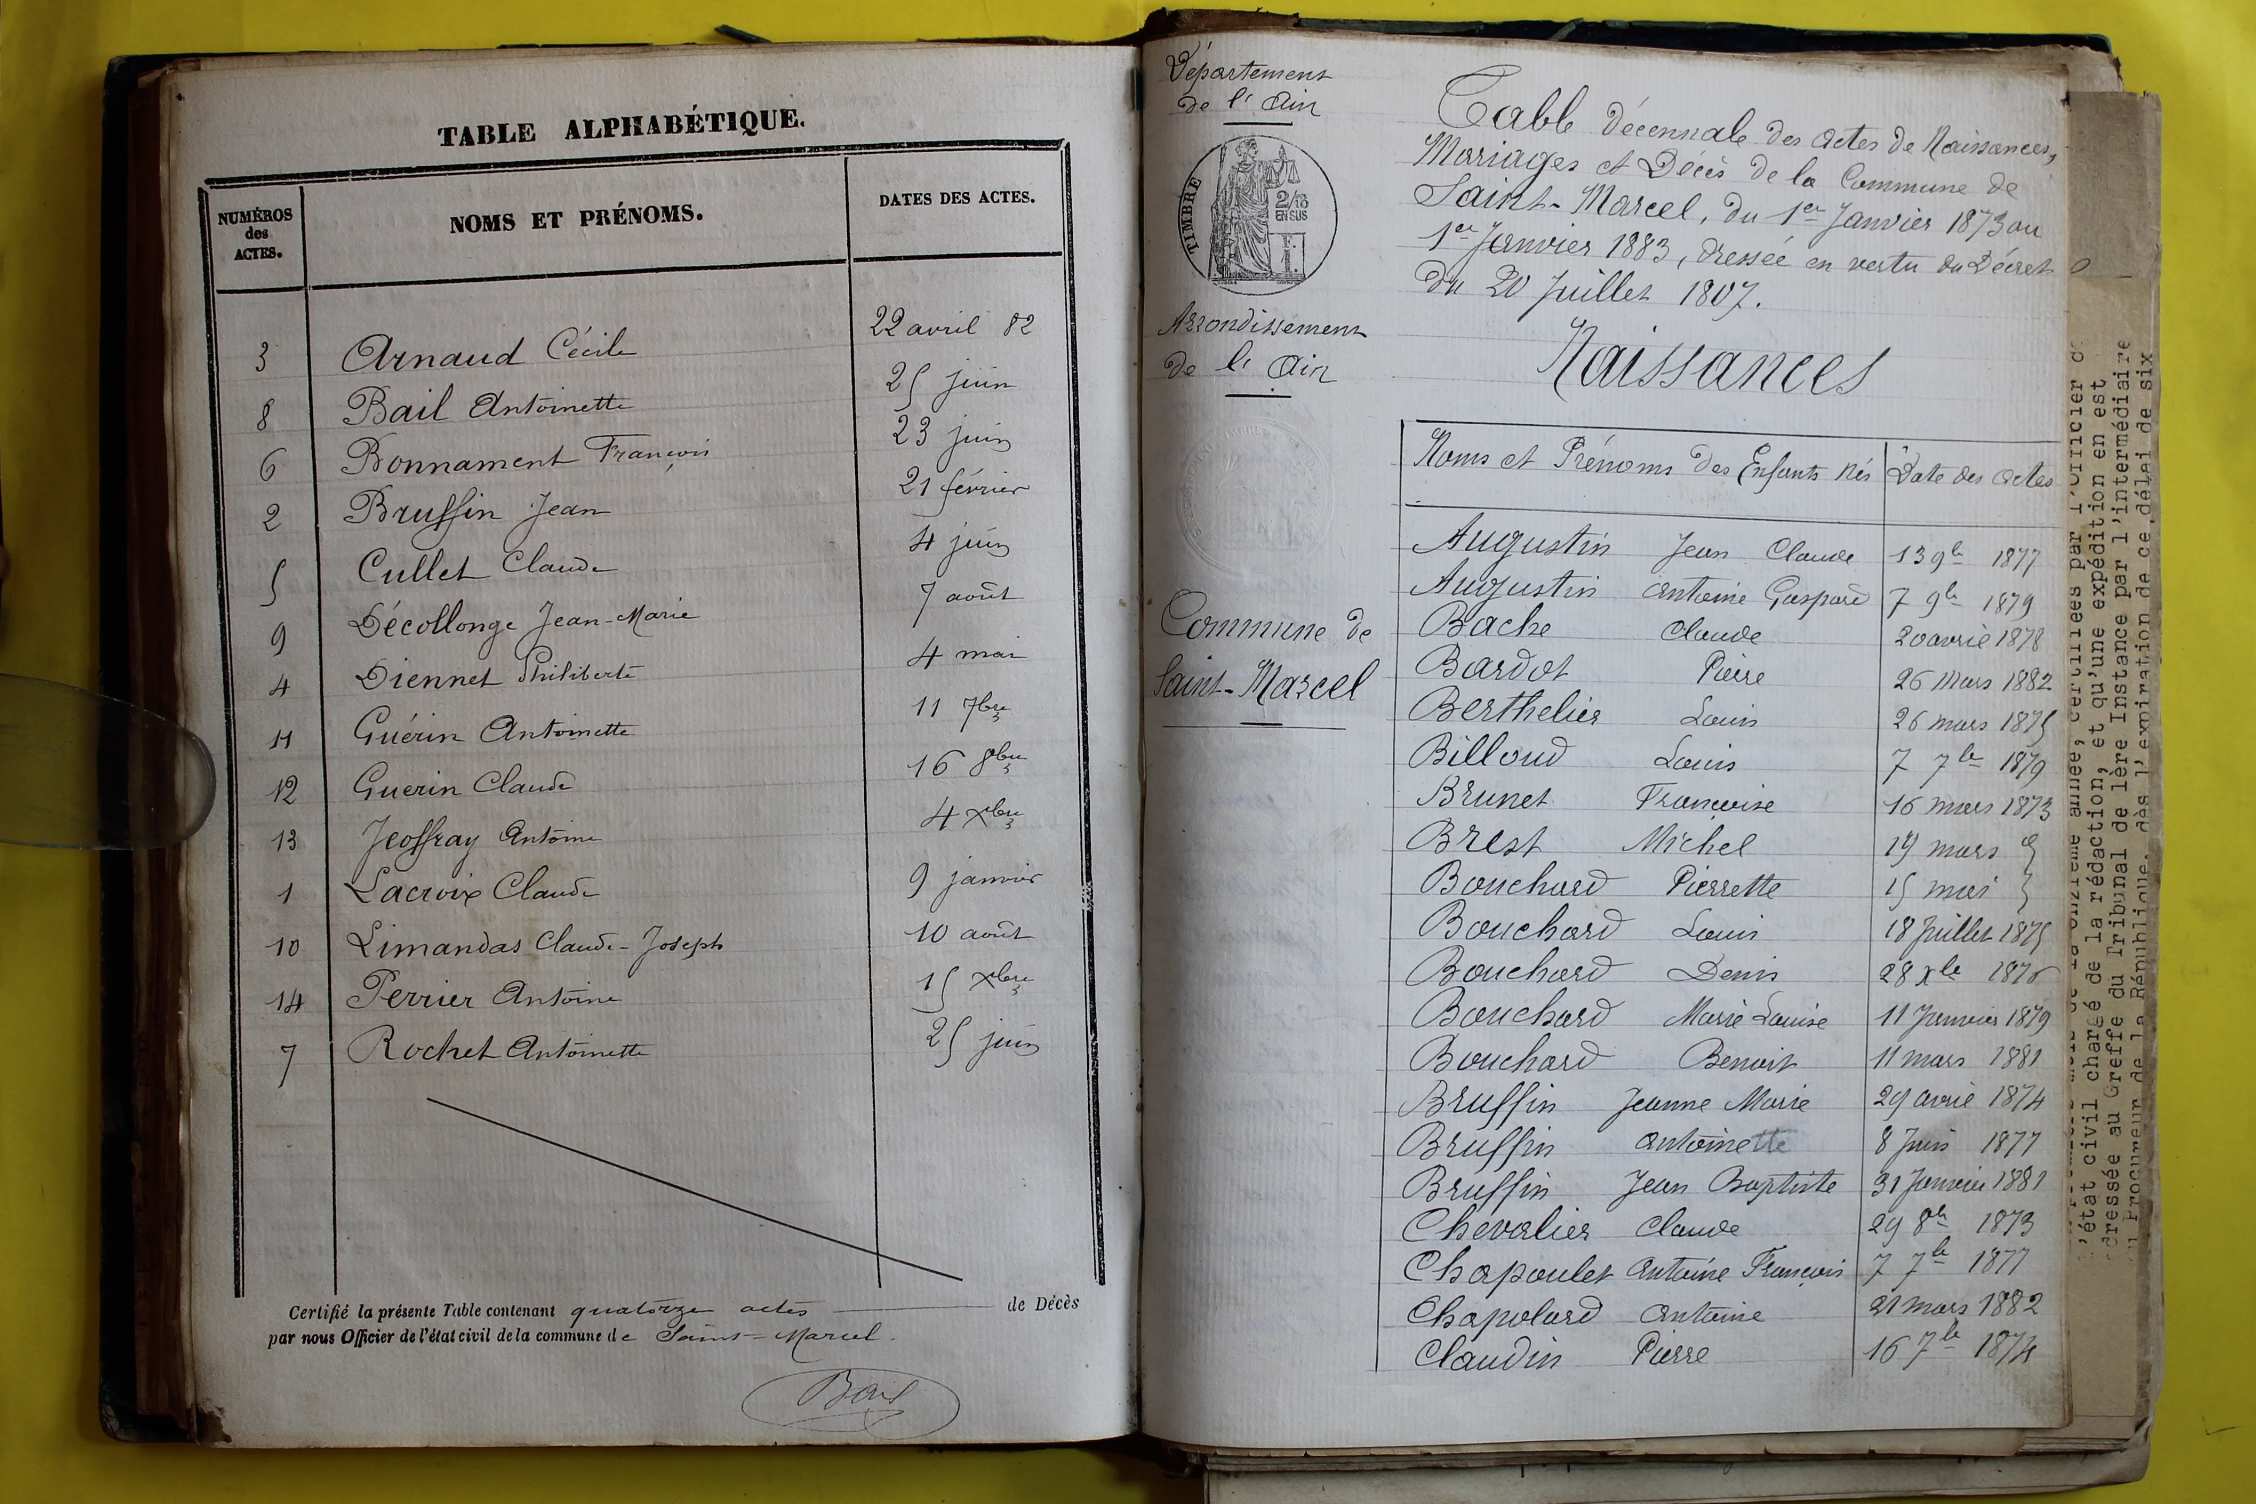 TABLE ALPHABÉTIQUE.
NUMÉROS des ACTES. NOMS ET PRÉNOMS. DATES DES ACTES.
3 Arnaud Cécile 22 avril 82
8 Bail Antoinette 25 juin
6 Bonnament François 23 juin
2 Bruffin Jean 21 février
5 Cullet Claude 4 juin
9 Décollonge Jean-Marie 7 août
4 Diennet Philiberte 4 mai
11 Guérin Antoinette 11 7bre
12 Guerin Claude 16 8bre
13 Jeoffray Antoine 4 Xbre
1 Lacroix Claude 9 janvier
10 Limandas Claude-Joseph 10 août
14 Perrier Antoine 15 Xbre
7 Rochet Antoinette 25 juin
Certifié la présente Table contenant quatorze actes de Décès
par nous Officier de l'état civil de la commune de Saint-Marcel.
Bail
Département
de l'Ain
TIMBRE
2/10
EN SUS
Arrondissement
de l'Ain
Commune de
Saint-Marcel
Table décennale des actes de Naissances,
Mariages et Décès de la Commune de
Saint-Marcel, du 1er Janvier 1873 au
1er Janvier 1883, dressée en vertu du Décret
du 20 Juillet 1807.
Naissances
Noms et Prénoms des Enfants Nés Date des actes
Augustin Jean Claude 13 9bre 1877
Augustin Antoine Gaspard 7 9bre 1879
Bache Claude 20 avril 1878
Bardot Pierre 26 mars 1882
Berthelier Louis 26 mars 1875
Billoud Louis 7 7bre 1879
Brunet Françoise 16 mars 1873
Brest Michel 19 mars
Bouchard Pierrette 15 mai
Bouchard Louis 18 Juillet 1875
Bouchard Denis 28 Xbre
Bouchard Marie Louise 11 Janvier 1879
Bouchard Benoit 11 mars 1881
Bruffin Jeanne Marie 29 avril 1874
Bruffin Antoinette 8 Juin 1877
Bruffin Jean Baptiste 31 Janvier 1881
Chevalier Claude 29 8bre 1873
Chapoulet Antoine François 7 7bre 1877
Chapolard Antoine 21 mars 1882
Claudin Pierre 16 7bre 1874
année, certifiées par l'Officier
l'état civil chargé de la rédaction, et qu'une expédition en est
dressée au Greffe du Tribunal de 1ère Instance par l'intermédiaire
Procureur de la République, dès l'expiration de ce délai de six